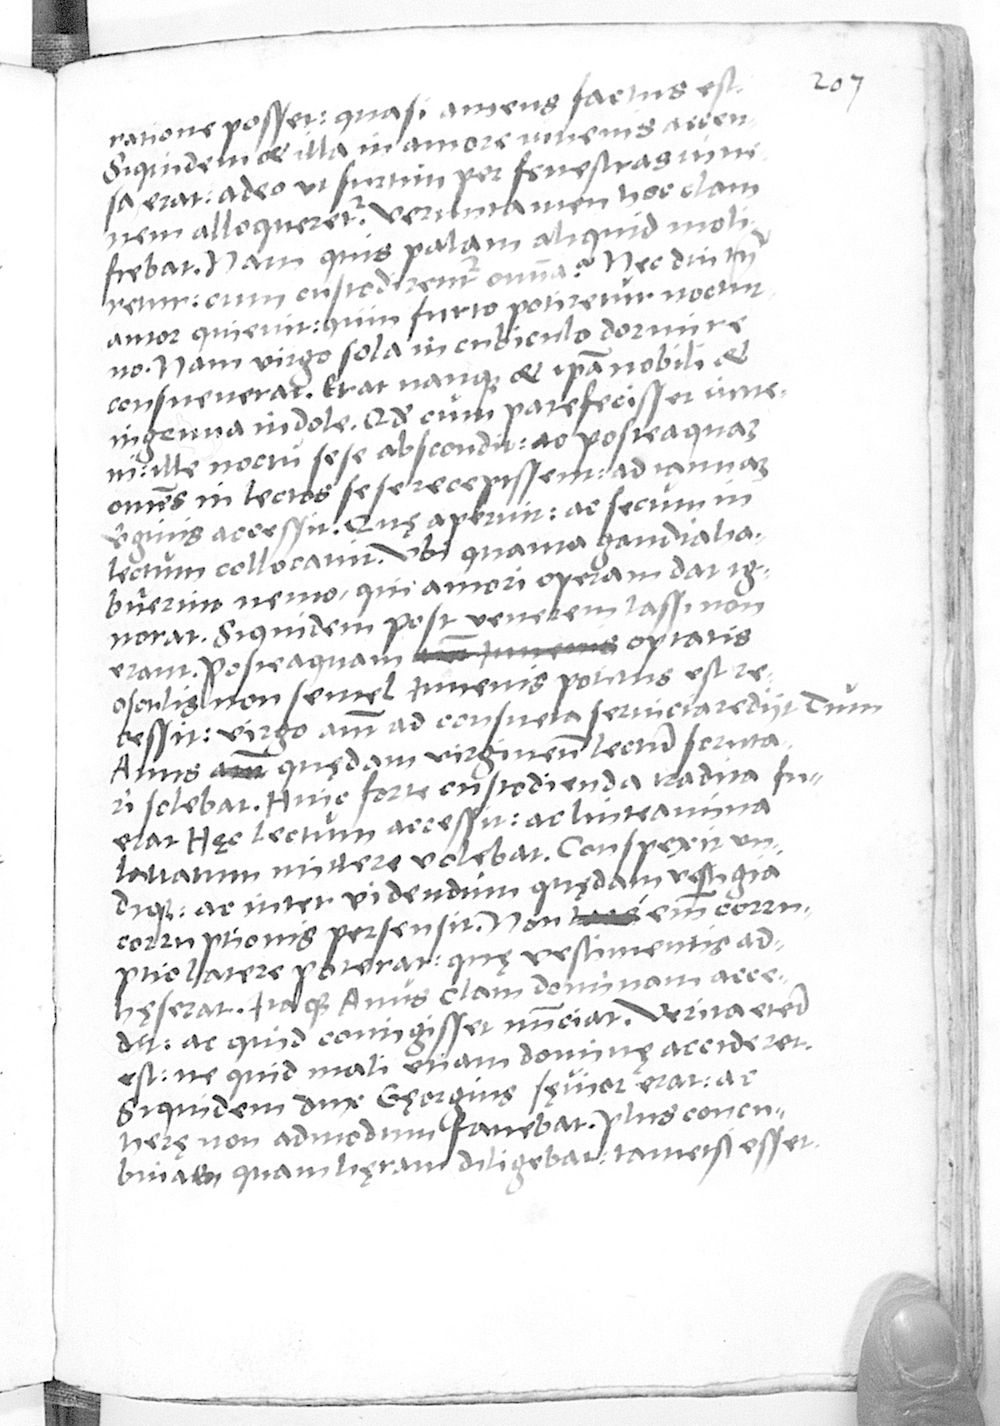 207
ratione posset: quasi amens factus est.
Siquidem & illa in amore iuuenis accen-
sa erat: adeo ut furtim per fenestras iuue-
nem alloqueret᷑. Veruntamen hoc clam
fiebat. Nam quis palam aliquid moli-
retur: cum custodirent᷑ omīa? Nec diu tn̄
amor quieuit: quin furto potiretur noctur-
no. Nam virgo sola in cubiculo dormire
consueuerat. Erat nanq; & ipa nobili &
ingenua indole. Qđ cum patefecisset iuue-
ni: ille noctu sese abscondit: ac posteaquaʒ
omēs in lectos sese recepissent: ad ianuaʒ
v̄ginis accessit. Quę aperuit: ac secum in
lectum collocauit. Vbi quanta gaudia ha-
buerint nemo, qui amori operam dat ig-
norat. Siquidem post venerem lassi non
erant. Posteaquam optatis
osculis non semel iuuenis potitus est re-
cessit: virgo aūt ad consueta seruicia redijt Tum
Anus quędam virgineū lectū scruta-
ri solebat. Huic forte custodienda tradita fu-
erat Hęc lectum accessit: ac linteamina
lauatum mittere volebat. Conspexit un-
diq;: ac inter videndum quędam vestigia
corruptionis persensit. Non em̄ corru-
ptio latere poterat: quę vestimentis ad-
hęserat. Itaq; Anus clam dominam acce-
dit: ac quid contigisset nūciat. Verita etem̄
est: ne quid mali etiam dominę accideret.
Siquidem dux Geęorgius sęuior erat: ac
herę non admodum fauebat. Plus concu-
binam quam hęram diligebat: tametsi esset.